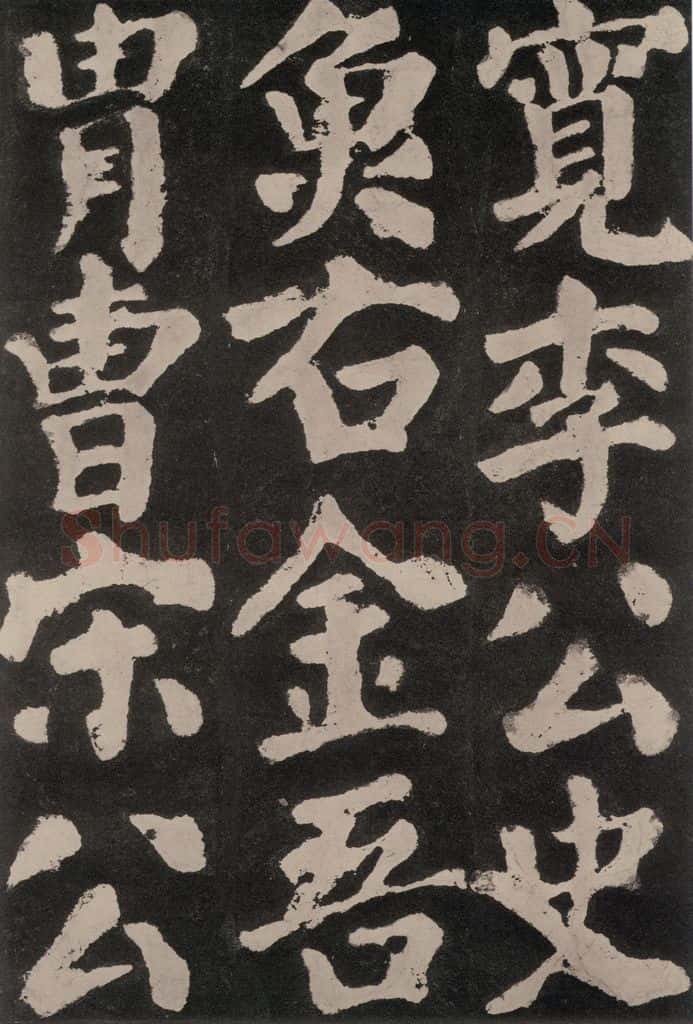 寬李公史
魚右金吾
胄曹宋公
Shufawang.CN